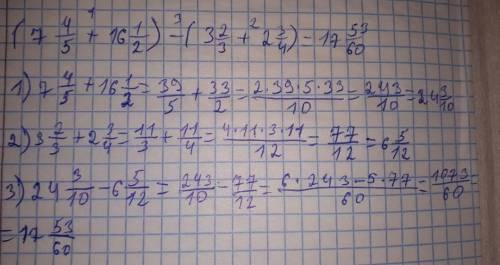 (7 4/5 + 16 1/2) - (3 2/3 + 2 3/4) = 17 53/60
1) 7 4/5 + 16 1/2 = 39/5 + 33/2 = 2·39·5·33/10 = 243/10 = 24 3/10
2) 3 2/3 + 2 3/4 = 11/3 + 11/4 = 4·11·3·11/12 = 77/12 = 6 5/12
3) 24 3/10 - 6 5/12 = 243/10 - 77/12 = 6·243-5·77/60 = 1073/60 =
= 17 53/60